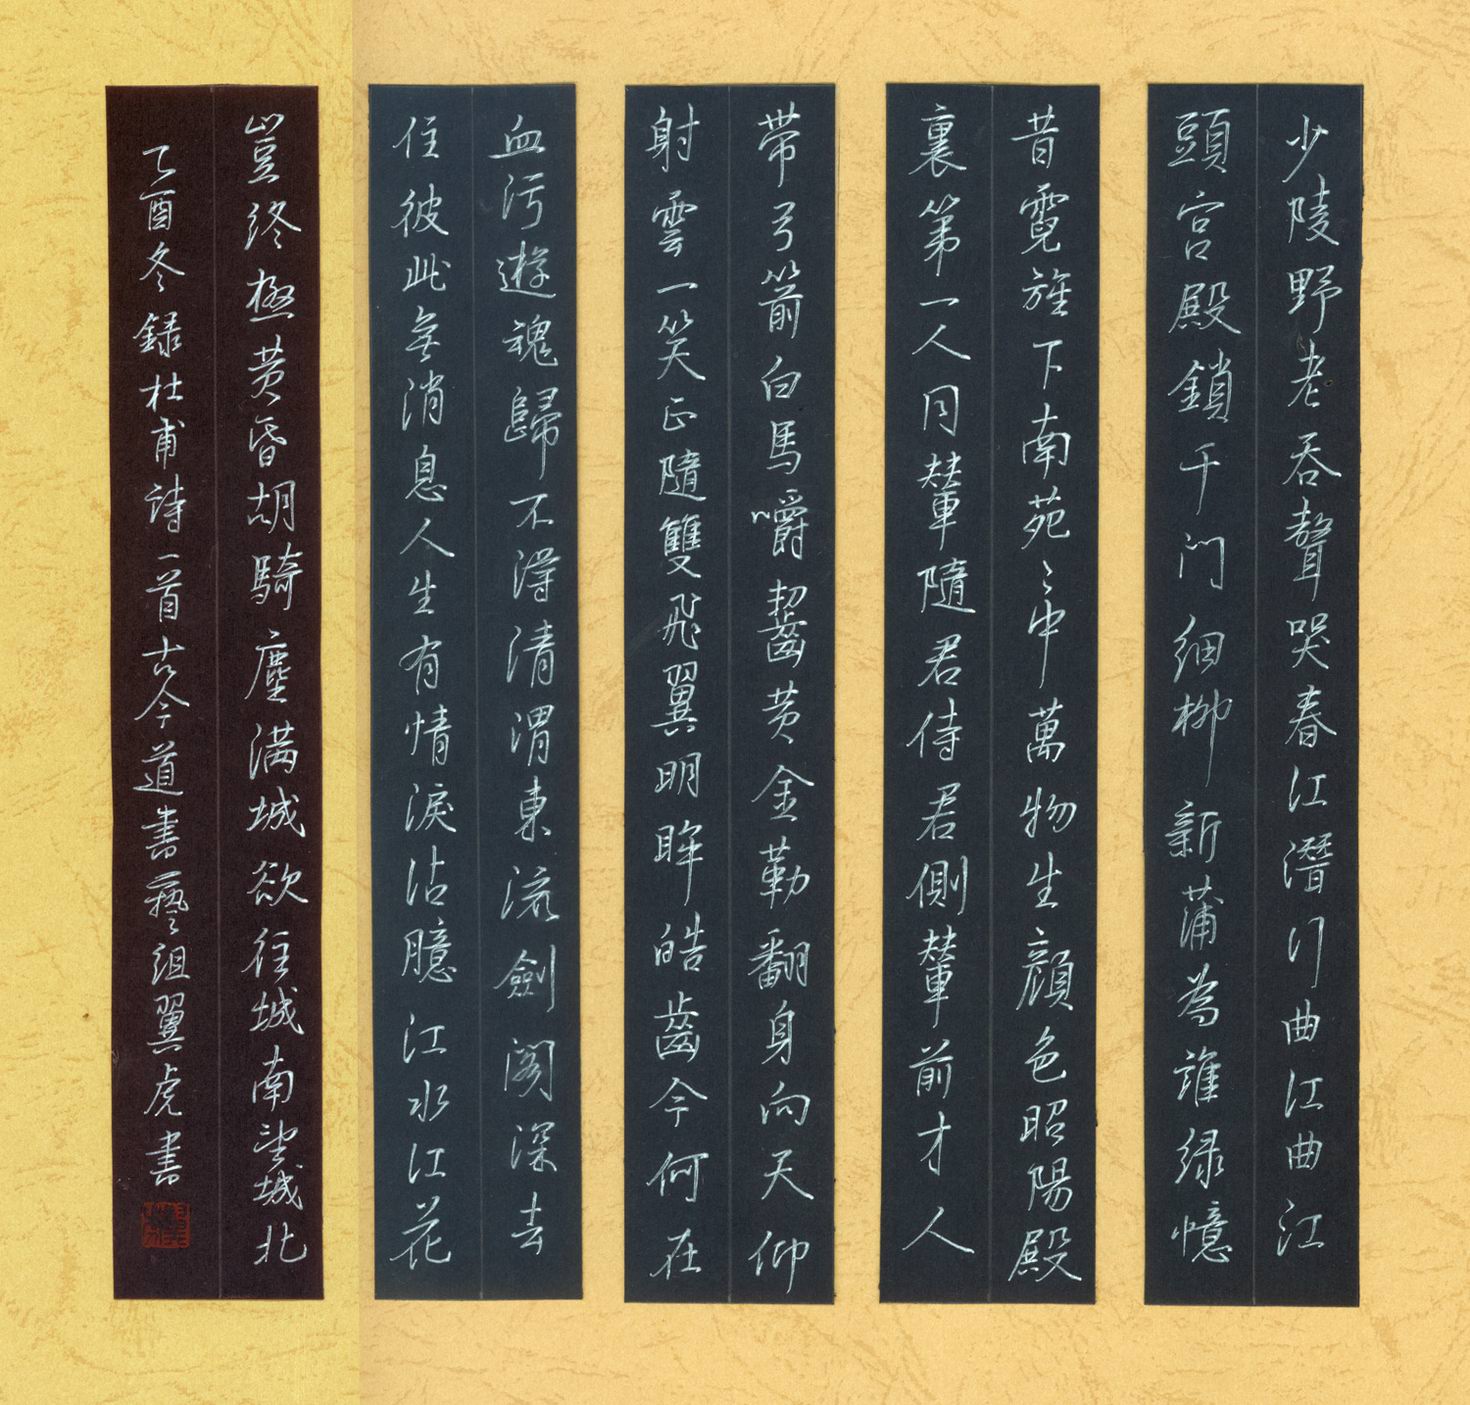 少陵野老吞聲哭春江潛行曲江曲江
頭宮殿鎖千门细柳新蒲為誰绿憶
昔霓旌下南苑〻中萬物生顔色昭陽殿
裏第一人同輦隨君侍君側輦前才人
带弓箭白馬嚼齧黄金勒翻身向天仰
射雲一笑正隨雙飛翼明眸皓齒今何在
血污遊魂歸不得清渭東流劍阁深去
住彼此無消息人生有情淚沾臆江水江花
豈終極黄昏胡騎塵满城欲往城南望城北
乙酉冬録杜甫詩一首古今道書藝組翼虎書